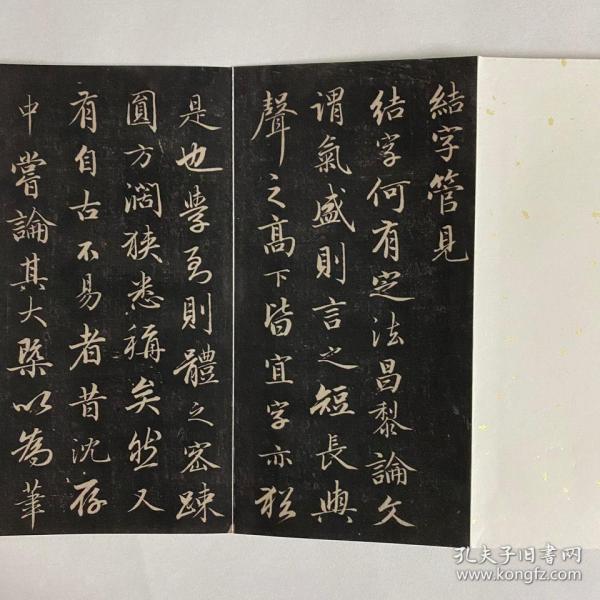 結字管見
結字何有定法昌黎論文
謂氣盛則言之短長與
聲之高下皆宜字亦猶
是也學多則體之密踈
圓方濶狹悉稱矣然又
有自古不易者昔沈存
中嘗論其大槩以為筆
孔夫子旧书网
www.kongfz.com